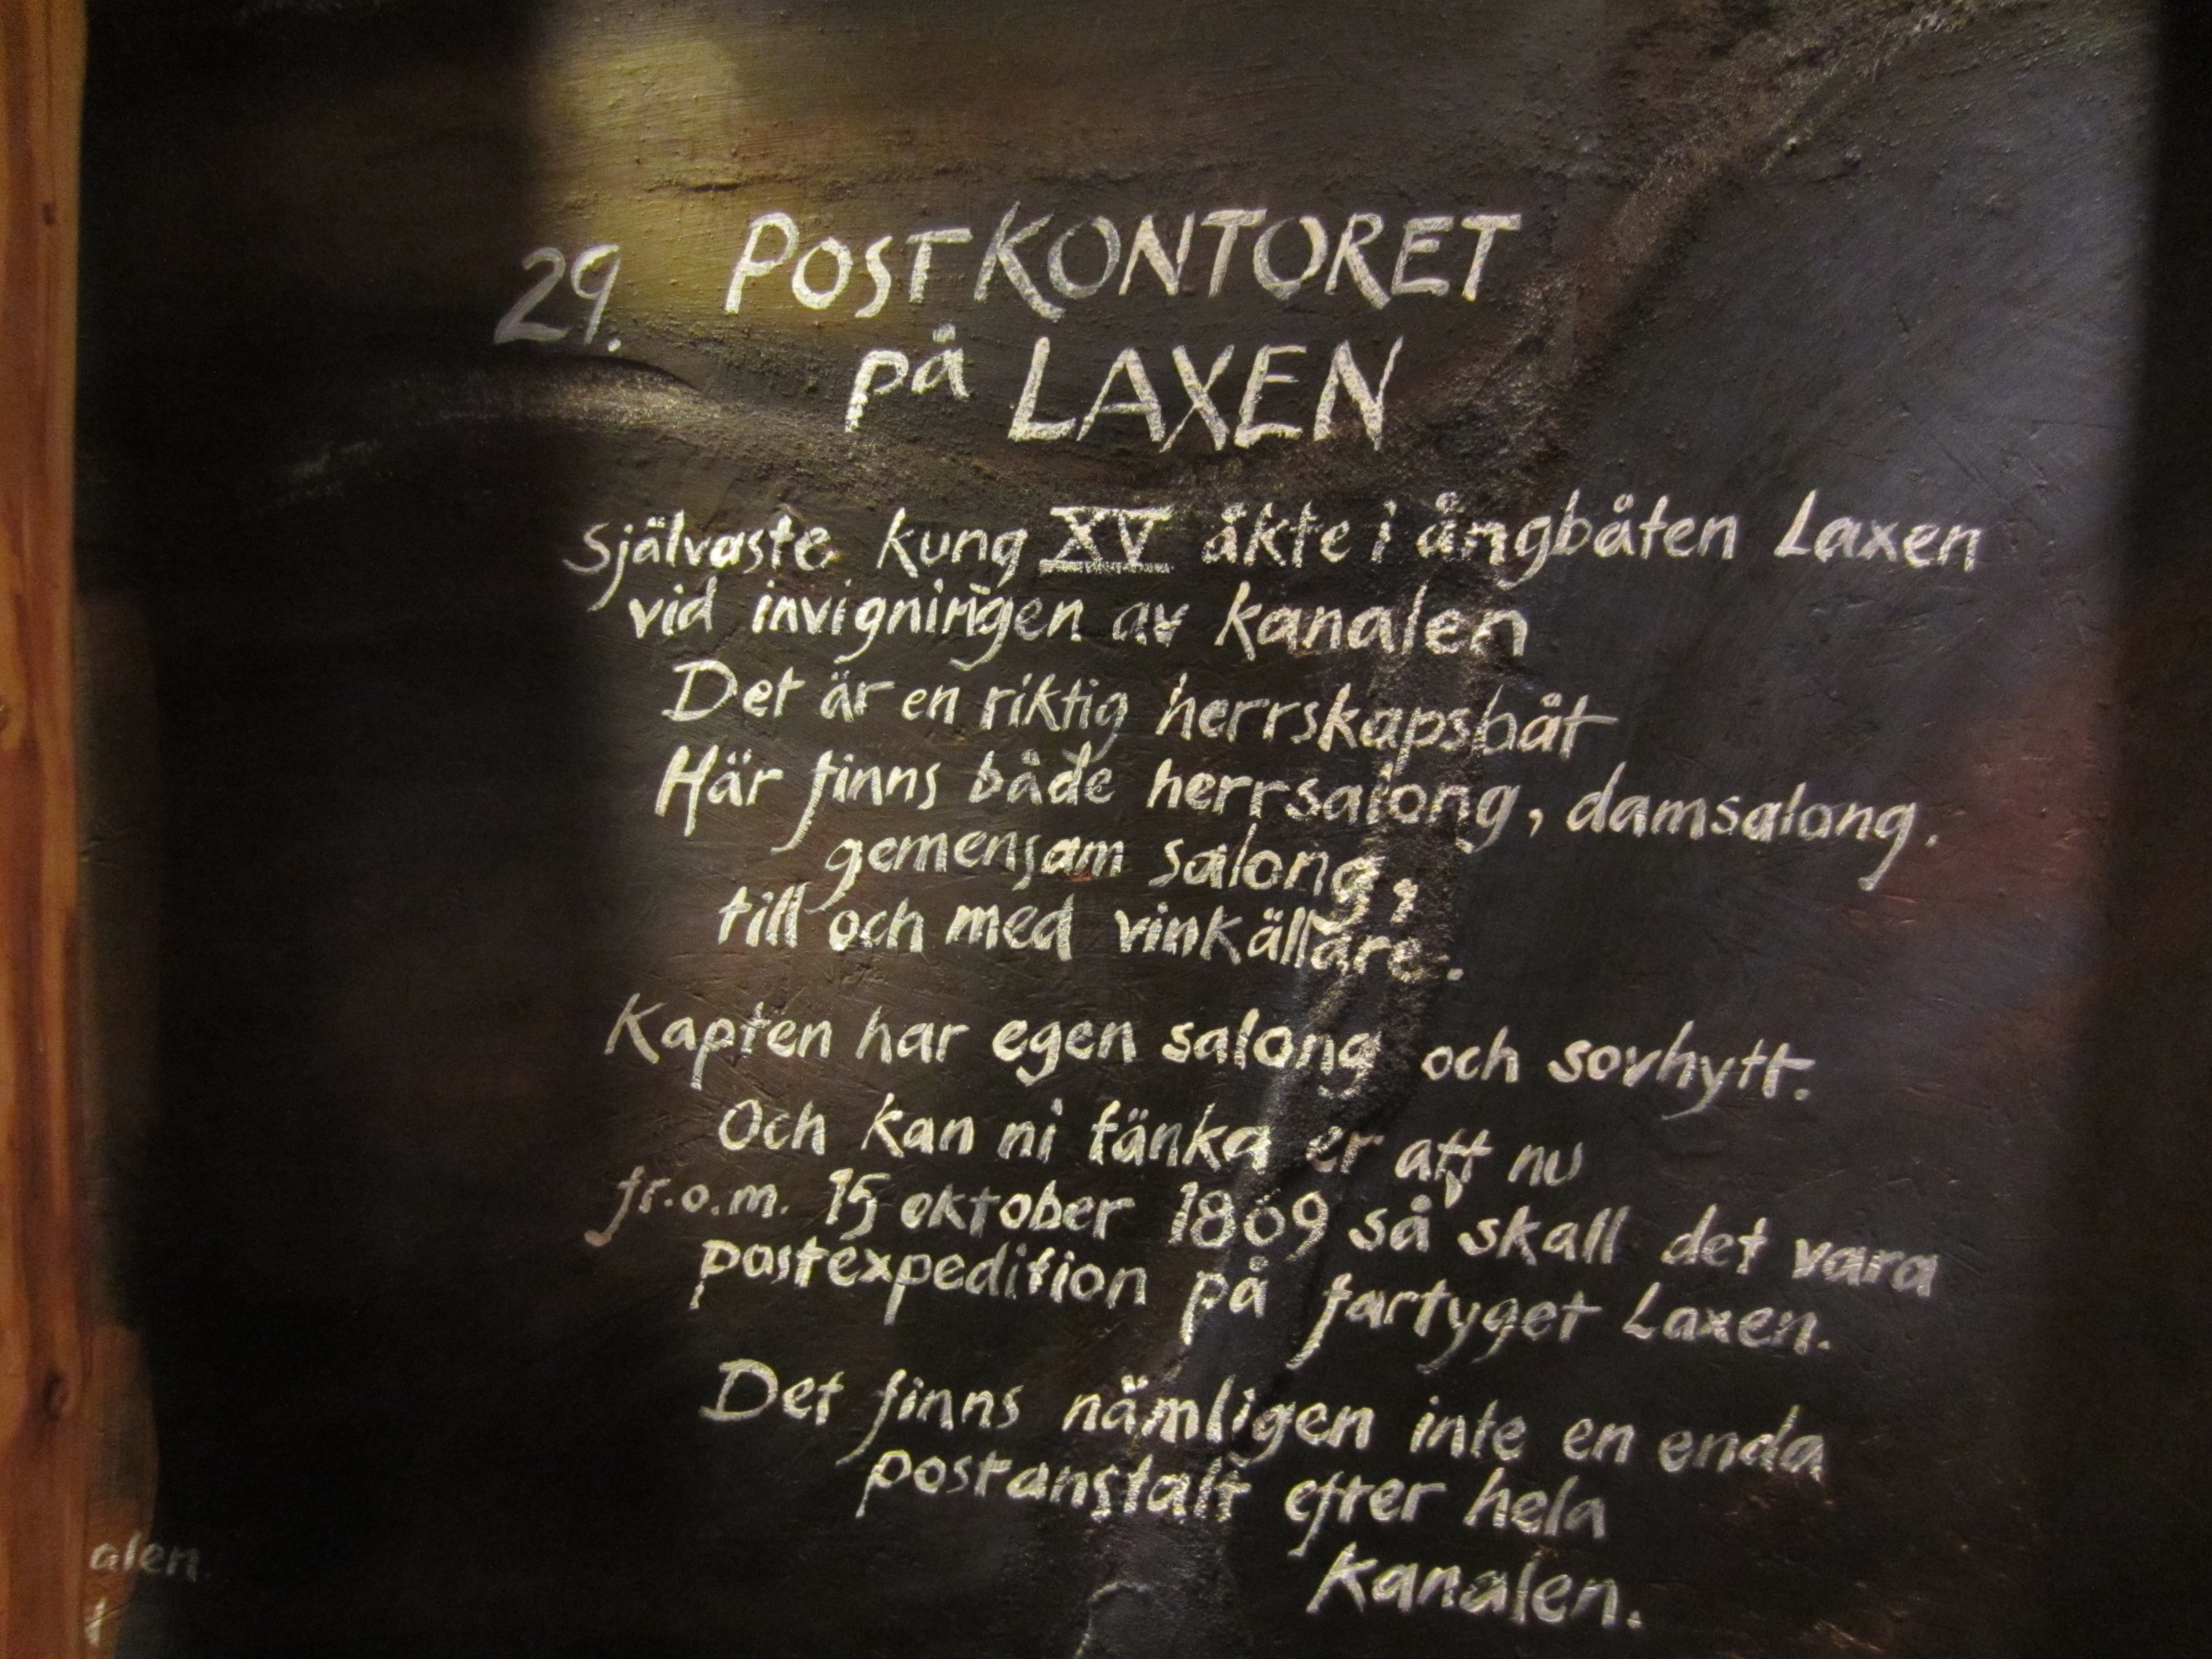 29. POSTKONTORET
på LAXEN
Självaste kung XV åkte i ångbåten Laxen
vid invigningen av kanalen
Det är en riktig herrskapsbåt
Här finns både herrsalong, damsalong.
gemensam salong,
till och med vinkällare.
Kapten har egen salong och sovhytt.
Och kan ni tänka er att nu
fr.o.m. 15 oktober 1869 så skall det vara
postexpedition på fartyget Laxen.
Det finns nämligen inte en enda
postanstalt efter hela
kanalen.
alen.
t